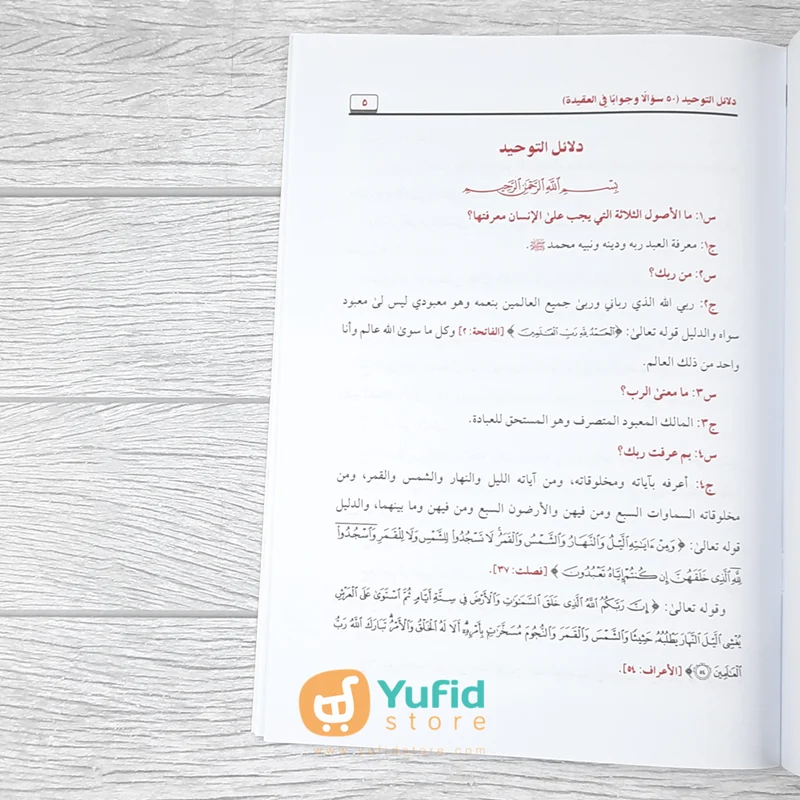 دلائل التوحيد (٥٠ سؤالا وجوابا في العقيدة)
٥
دلائل التوحيد
بِسْمِ ٱللَّهِ ٱلرَّحْمَٰنِ ٱلرَّحِيمِ
س١: ما الأصول الثلاثة التي يجب على الإنسان معرفتها؟
ج١: معرفة العبد ربه ودينه ونبيه محمد ﷺ.
س٢: من ربك؟
ج٢: ربي الله الذي رباني وربى جميع العالمين بنعمه وهو معبودي ليس لى معبود
سواه والدليل قوله تعالى: ﴿ٱلْحَمْدُ لِلَّهِ رَبِّ ٱلْعَٰلَمِينَ﴾ [الفاتحة: ٢] وكل ما سوى الله عالم وأنا
واحد من ذلك العالم.
س٣: ما معنى الرب؟
ج٣: المالك المعبود المتصرف وهو المستحق للعبادة.
س٤: بم عرفت ربك؟
ج٤: أعرفه بآياته ومخلوقاته، ومن آياته الليل والنهار والشمس والقمر، ومن
مخلوقاته السماوات السبع ومن فيهن والأرضون السبع ومن فيهن وما بينهما، والدليل
قوله تعالى: ﴿وَمِنْ ءَايَٰتِهِ ٱلَّيْلُ وَٱلنَّهَارُ وَٱلشَّمْسُ وَٱلْقَمَرُ لَا تَسْجُدُوا۟ لِلشَّمْسِ وَلَا لِلْقَمَرِ وَٱسْجُدُوا۟
لِلَّهِ ٱلَّذِى خَلَقَهُنَّ إِن كُنتُمْ إِيَّاهُ تَعْبُدُونَ﴾ [فصلت: ٣٧].
وقوله تعالى: ﴿إِنَّ رَبَّكُمُ ٱللَّهُ ٱلَّذِى خَلَقَ ٱلسَّمَٰوَٰتِ وَٱلْأَرْضَ فِى سِتَّةِ أَيَّامٍ ثُمَّ ٱسْتَوَىٰ عَلَى ٱلْعَرْشِ
يُغْشِى ٱلَّيْلَ ٱلنَّهَارَ يَطْلُبُهُۥ حَثِيثًا وَٱلشَّمْسَ وَٱلْقَمَرَ وَٱلنُّجُومَ مُسَخَّرَٰتٍۭ بِأَمْرِهِۦٓ أَلَا لَهُ ٱلْخَلْقُ وَٱلْأَمْرُ تَبَارَكَ ٱللَّهُ رَبُّ
ٱلْعَٰلَمِينَ ٥٤﴾ [الأعراف: ٥٤].
Yufid
store
www.yufidstore.com